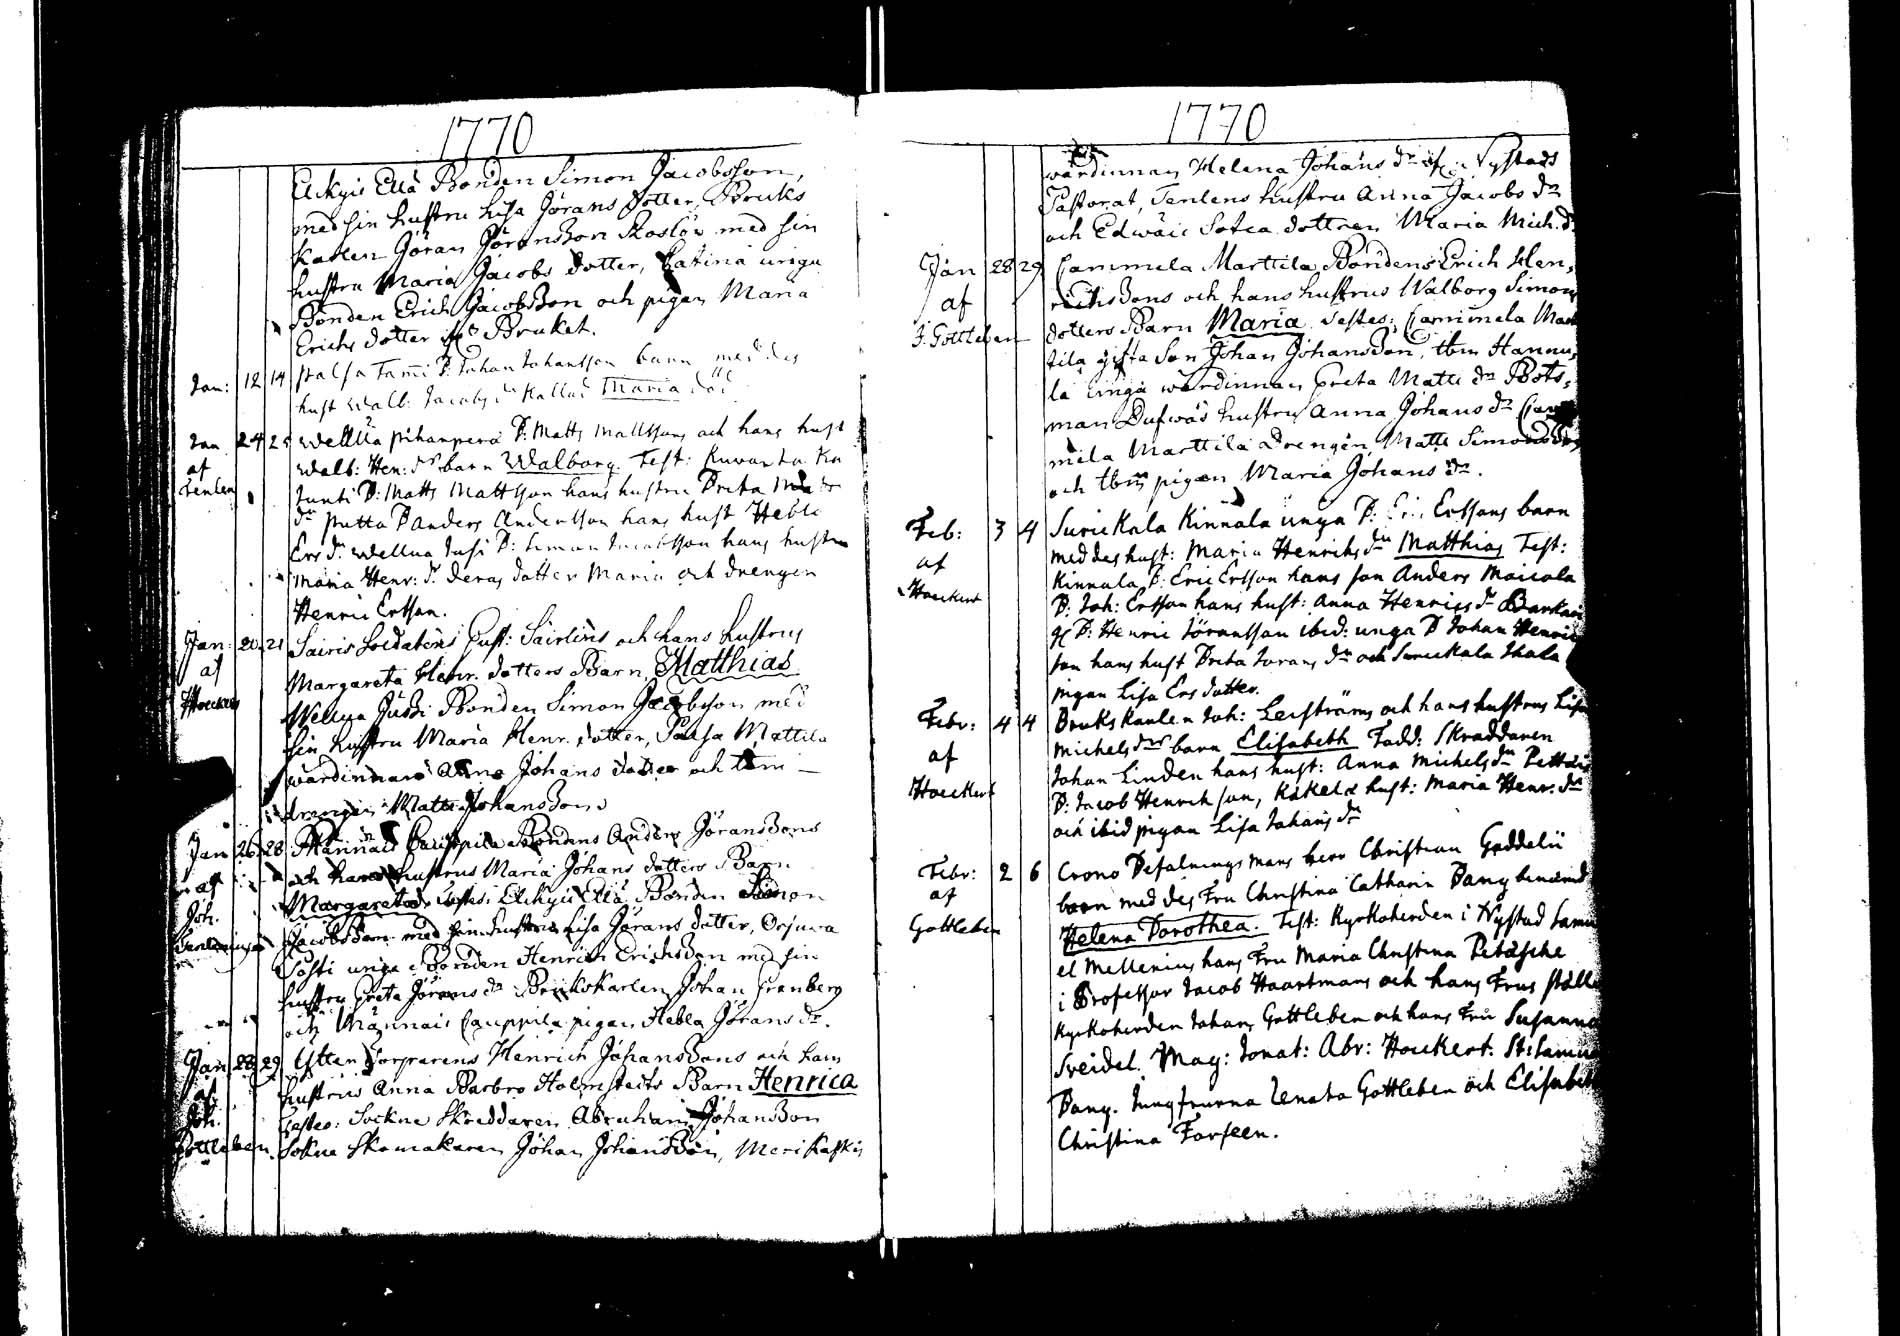 1770
Elkyis Ellä Bonden Simon Jacobsson,
med sin hustru Lisa Jörans dotter, Bruks
Karlen Jöran Jöransson Roslöv med sin
hustru Maria Jacobs dotter, unga
Bonden Erich Jacobsson och pigan Maria
Erichs dotter Bruket.
Jan: 12 14 Palsa Tami B: Johan Johansson barn med des
hust Walb: Jacobs dr Kallad Maria död
Jan 24 25 Wellua pihanperä B: Matts Mattssons och hans hust
af Walb: Hen: drs barn Walborg. Test: Kuvanta Ku
Tenlen junti B: Matts Mattsson hans hustru Brita Matts
dr putta B Anders Andersson hans hust Hebla
Ers dr. Wellua Jusi B: Simon Jacobsson hans hustru
Maria Henr: dr. deras dotter Maria och drengen
Henric Ersson.
Jan: 20 21 Sairis Soldatens Gust: Sairlins och hans hustrus
af Margareta Henr. dotters Barn, Matthias
Hoeckert Wellua Jussi Bonden Simon Jacobsson med
sin hustru Maria Henr. dotter, Palsa Mattila
wärdinnan Anna Johans dotter och tbm
drengen Matts Johansson
Jan 26 28 Männäis Cauppila Bondens Anders Jöranssons
af och hans hustrus Maria Johans dotters Barn
Joh. Margareta, Testes: Elkyis Ellä Bonden Simon
Jacobsson med sin hustru Lisa Jörans dotter, Orjuwa
Sosti unga Bonden Henrich Erichsson med sin
hustru Greta Jörans dr Brukskarlen Johan Granberg
och Männäis Cauppila pigan Hebla Jörans dr.
Jan 28 29 Ytter Torparens Henrich Johanssons och hans
af hustrus Anna Barbro Holmstedts Barn Henrica
Joh. Testes: Sockne Skreddaren Abraham Johansson
Gottleben. Sokne Skomakaren Johan Johansson, Merikaski
1770
wärdinnan Helena Johans dr Nystads
Pastorat, Tenlens hustru Anna Jacobs dr
och Edwäis Sotca dottren Maria Mich. dr
Jan 28 29 Cammela Marttila Bondens Erich Hen,
af richssons och hans hustrus Walborg Simons
J. Gottleben dotters Barn Maria. Testes: Cammela Mart
tila gifta Son Johan Johansson, tbm Hannu,
la unga wärdinnan Greta Matts dr Båts,
man Dufwas hustru Anna Johans dr Cam
mela Marttila drengen Matts Simonsson
och tbm pigan Maria Johans dr.
Feb: 3 4 Surickala Kinnala unga B: Eric Erssons barn
af med des hust: Maria Henrichs dr Matthias Test:
Hoeckert Kinnala B: Eric Ersson hans son Anders Maicala
B: Joh: Ersson hans hust: Anna Henrics dr
B: Henric Jöransson ibid: unga B Johan Henric
son hans hust Brita Jorans dr och Surickala Ikala
pigan Lisa Ers dotter.
Febr: 4 4 Brukskarlen Joh: Lerströms och hans hustrus Lisa
af Michels drs barn Elisabeth Fadd: Skräddaren
Hoeckert Johan Linden hans hust: Anna Michels dr
B: Jacob Henrichson, Kåkela hust: Maria Henr: dr
och ibid pigan Lisa Johans dr
Febr: 2 6 Crono Befalnings mans herr Christian Gaddelii
af barn med des Fru Christina Catharin Bang benämd
Gottleben Helena Dorothea. Test: Kyrkoherden i Nystad Samu
el Mellenius hans Fru Maria Christina Petäsche
i Professor Jacob Haartmans och hans Frus ställe
Kyrkoherden Johan Gottleben och hans Fru Susanna
Sveidel. Mag: Jonat: Abr: Hoeckert. St: Samuel
Bang. Jungfrurna Renata Gottleben och Elisabeth
Christina Forseen.